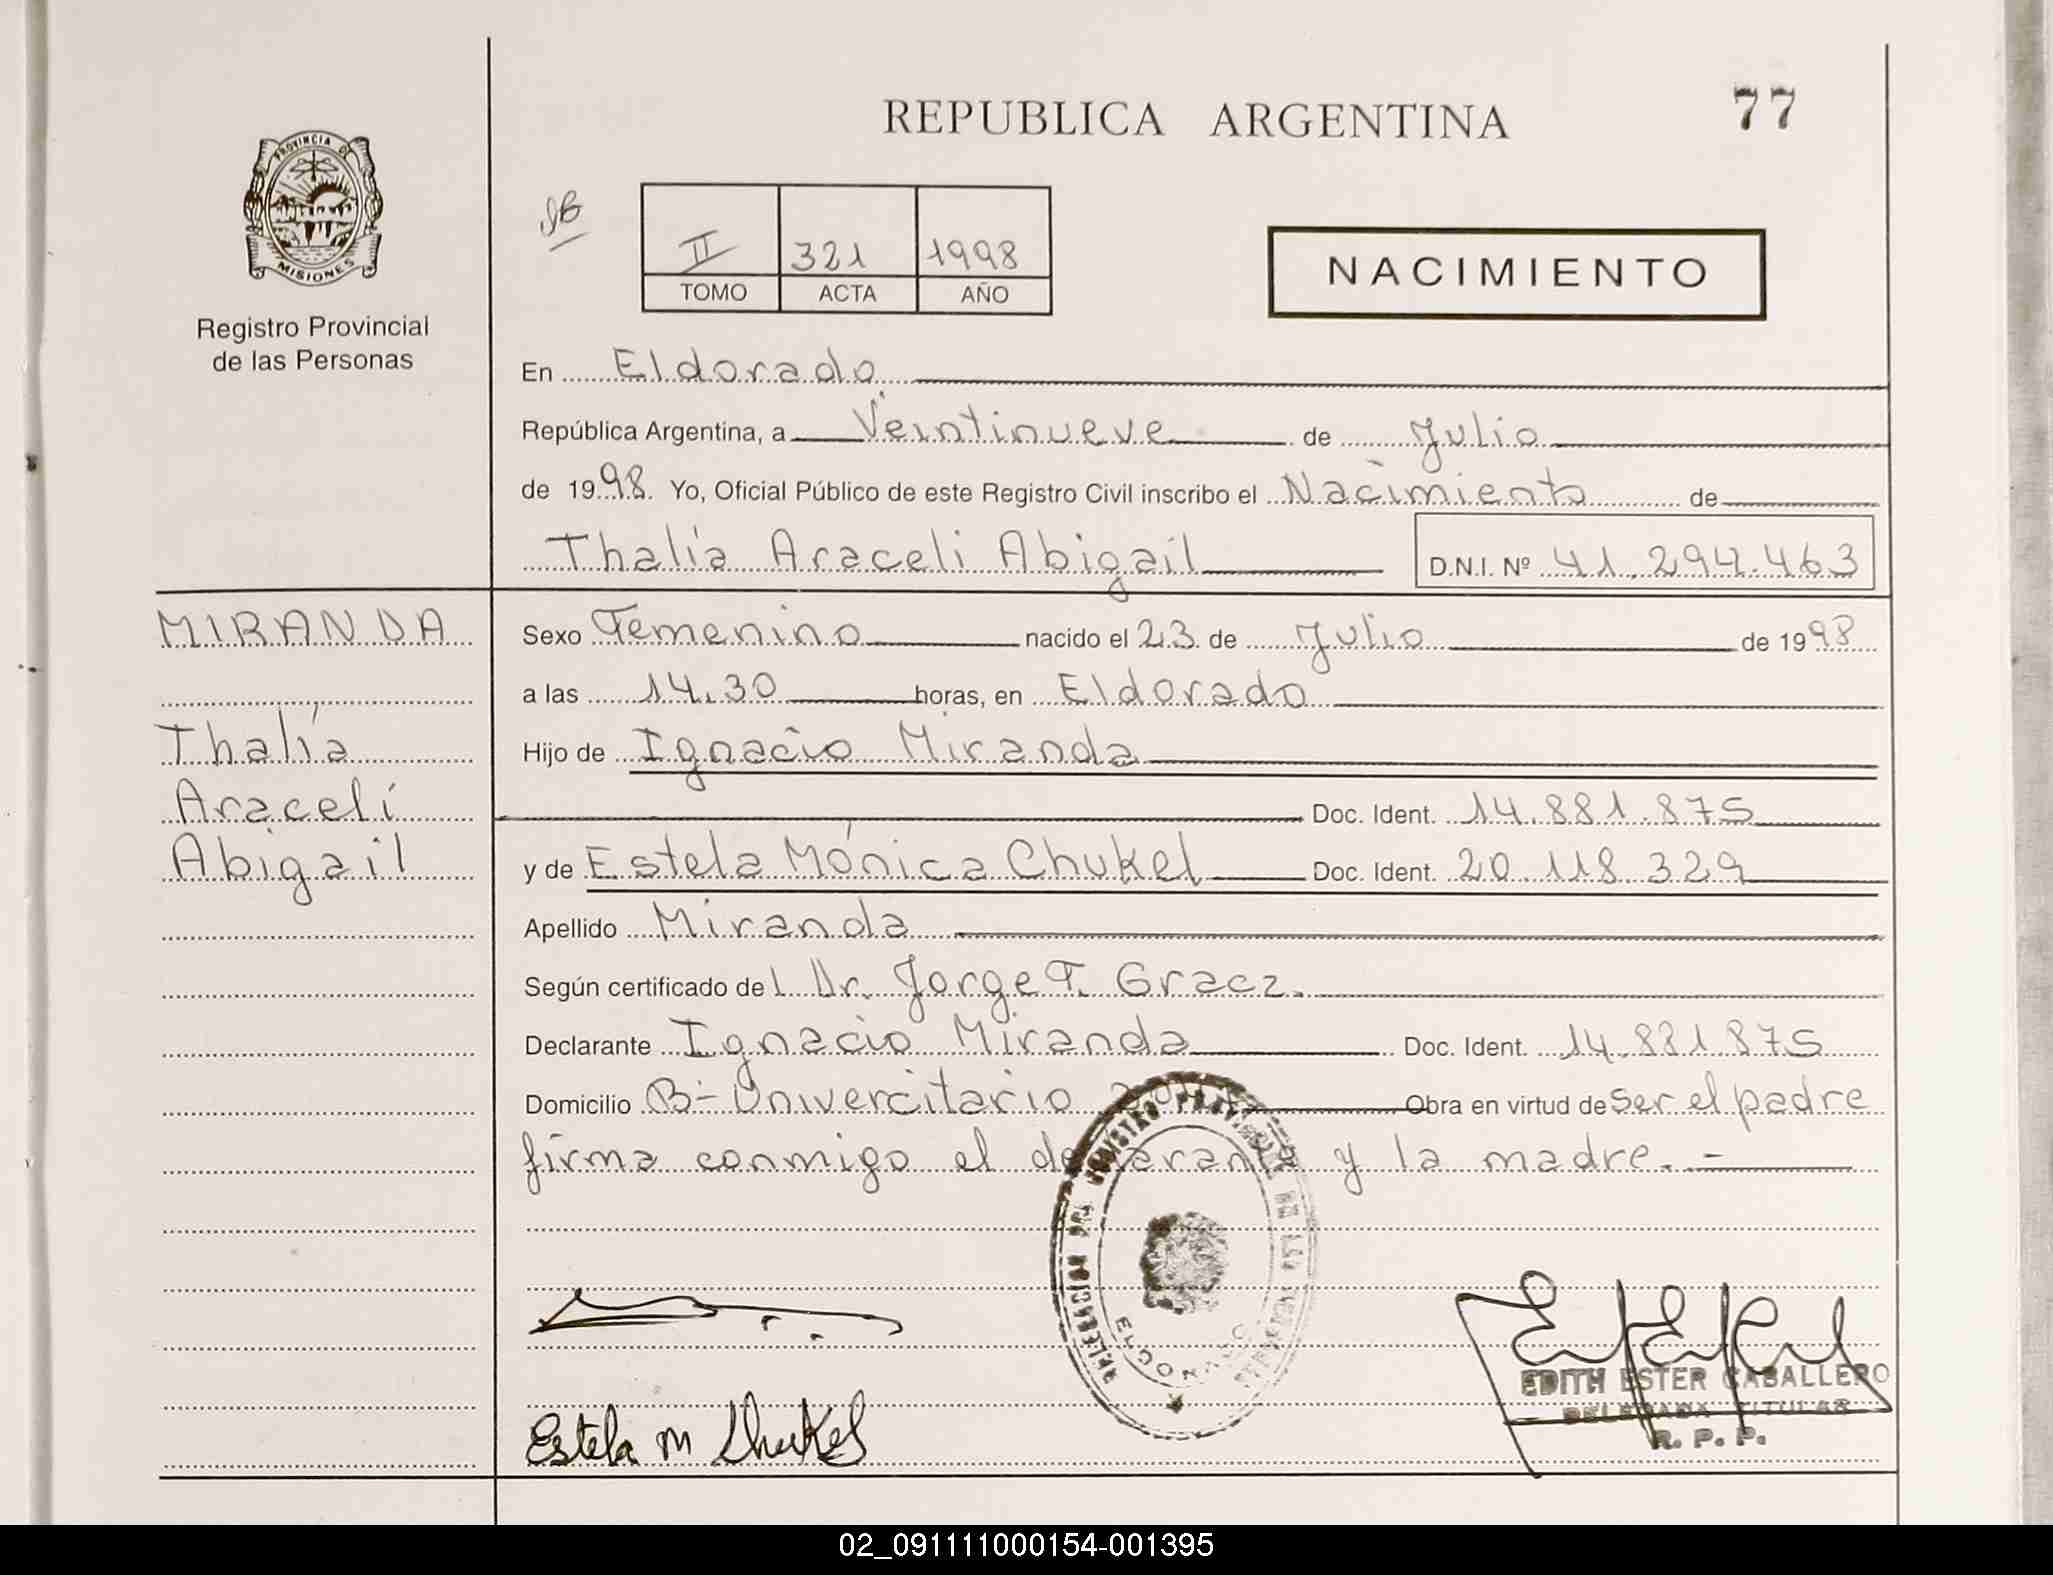 REPUBLICA ARGENTINA
77
PROVINCIA DE
MISIONES
Registro Provincial
de las Personas
II 321 1998
TOMO ACTA AÑO
NACIMIENTO
En Eldorado
República Argentina, a Veintinueve de Julio
de 1998. Yo, Oficial Público de este Registro Civil inscribo el Nacimiento de
Thalía Araceli Abigail D.N.I. Nº 41.294.463
MIRANDA
Thalía
Araceli
Abigail
Sexo Femenino nacido el 23 de Julio de 1998
a las 14.30 horas, en Eldorado
Hijo de Ignacio Miranda
Doc. Ident. 14.881.875
y de Estela Mónica Chukel Doc. Ident. 20.118.329
Apellido Miranda
Según certificado del Dr. Jorge F. Gracz.
Declarante Ignacio Miranda Doc. Ident. 14.881.875
Domicilio Bº Univercitario Obra en virtud de ser el padre
firma conmigo el declarante y la madre.-
Estela M Chukel
ELDORADO
EDITH ESTER CABALLERO
DELEGADA TITULAR
R. P. P.
02_091111000154-001395